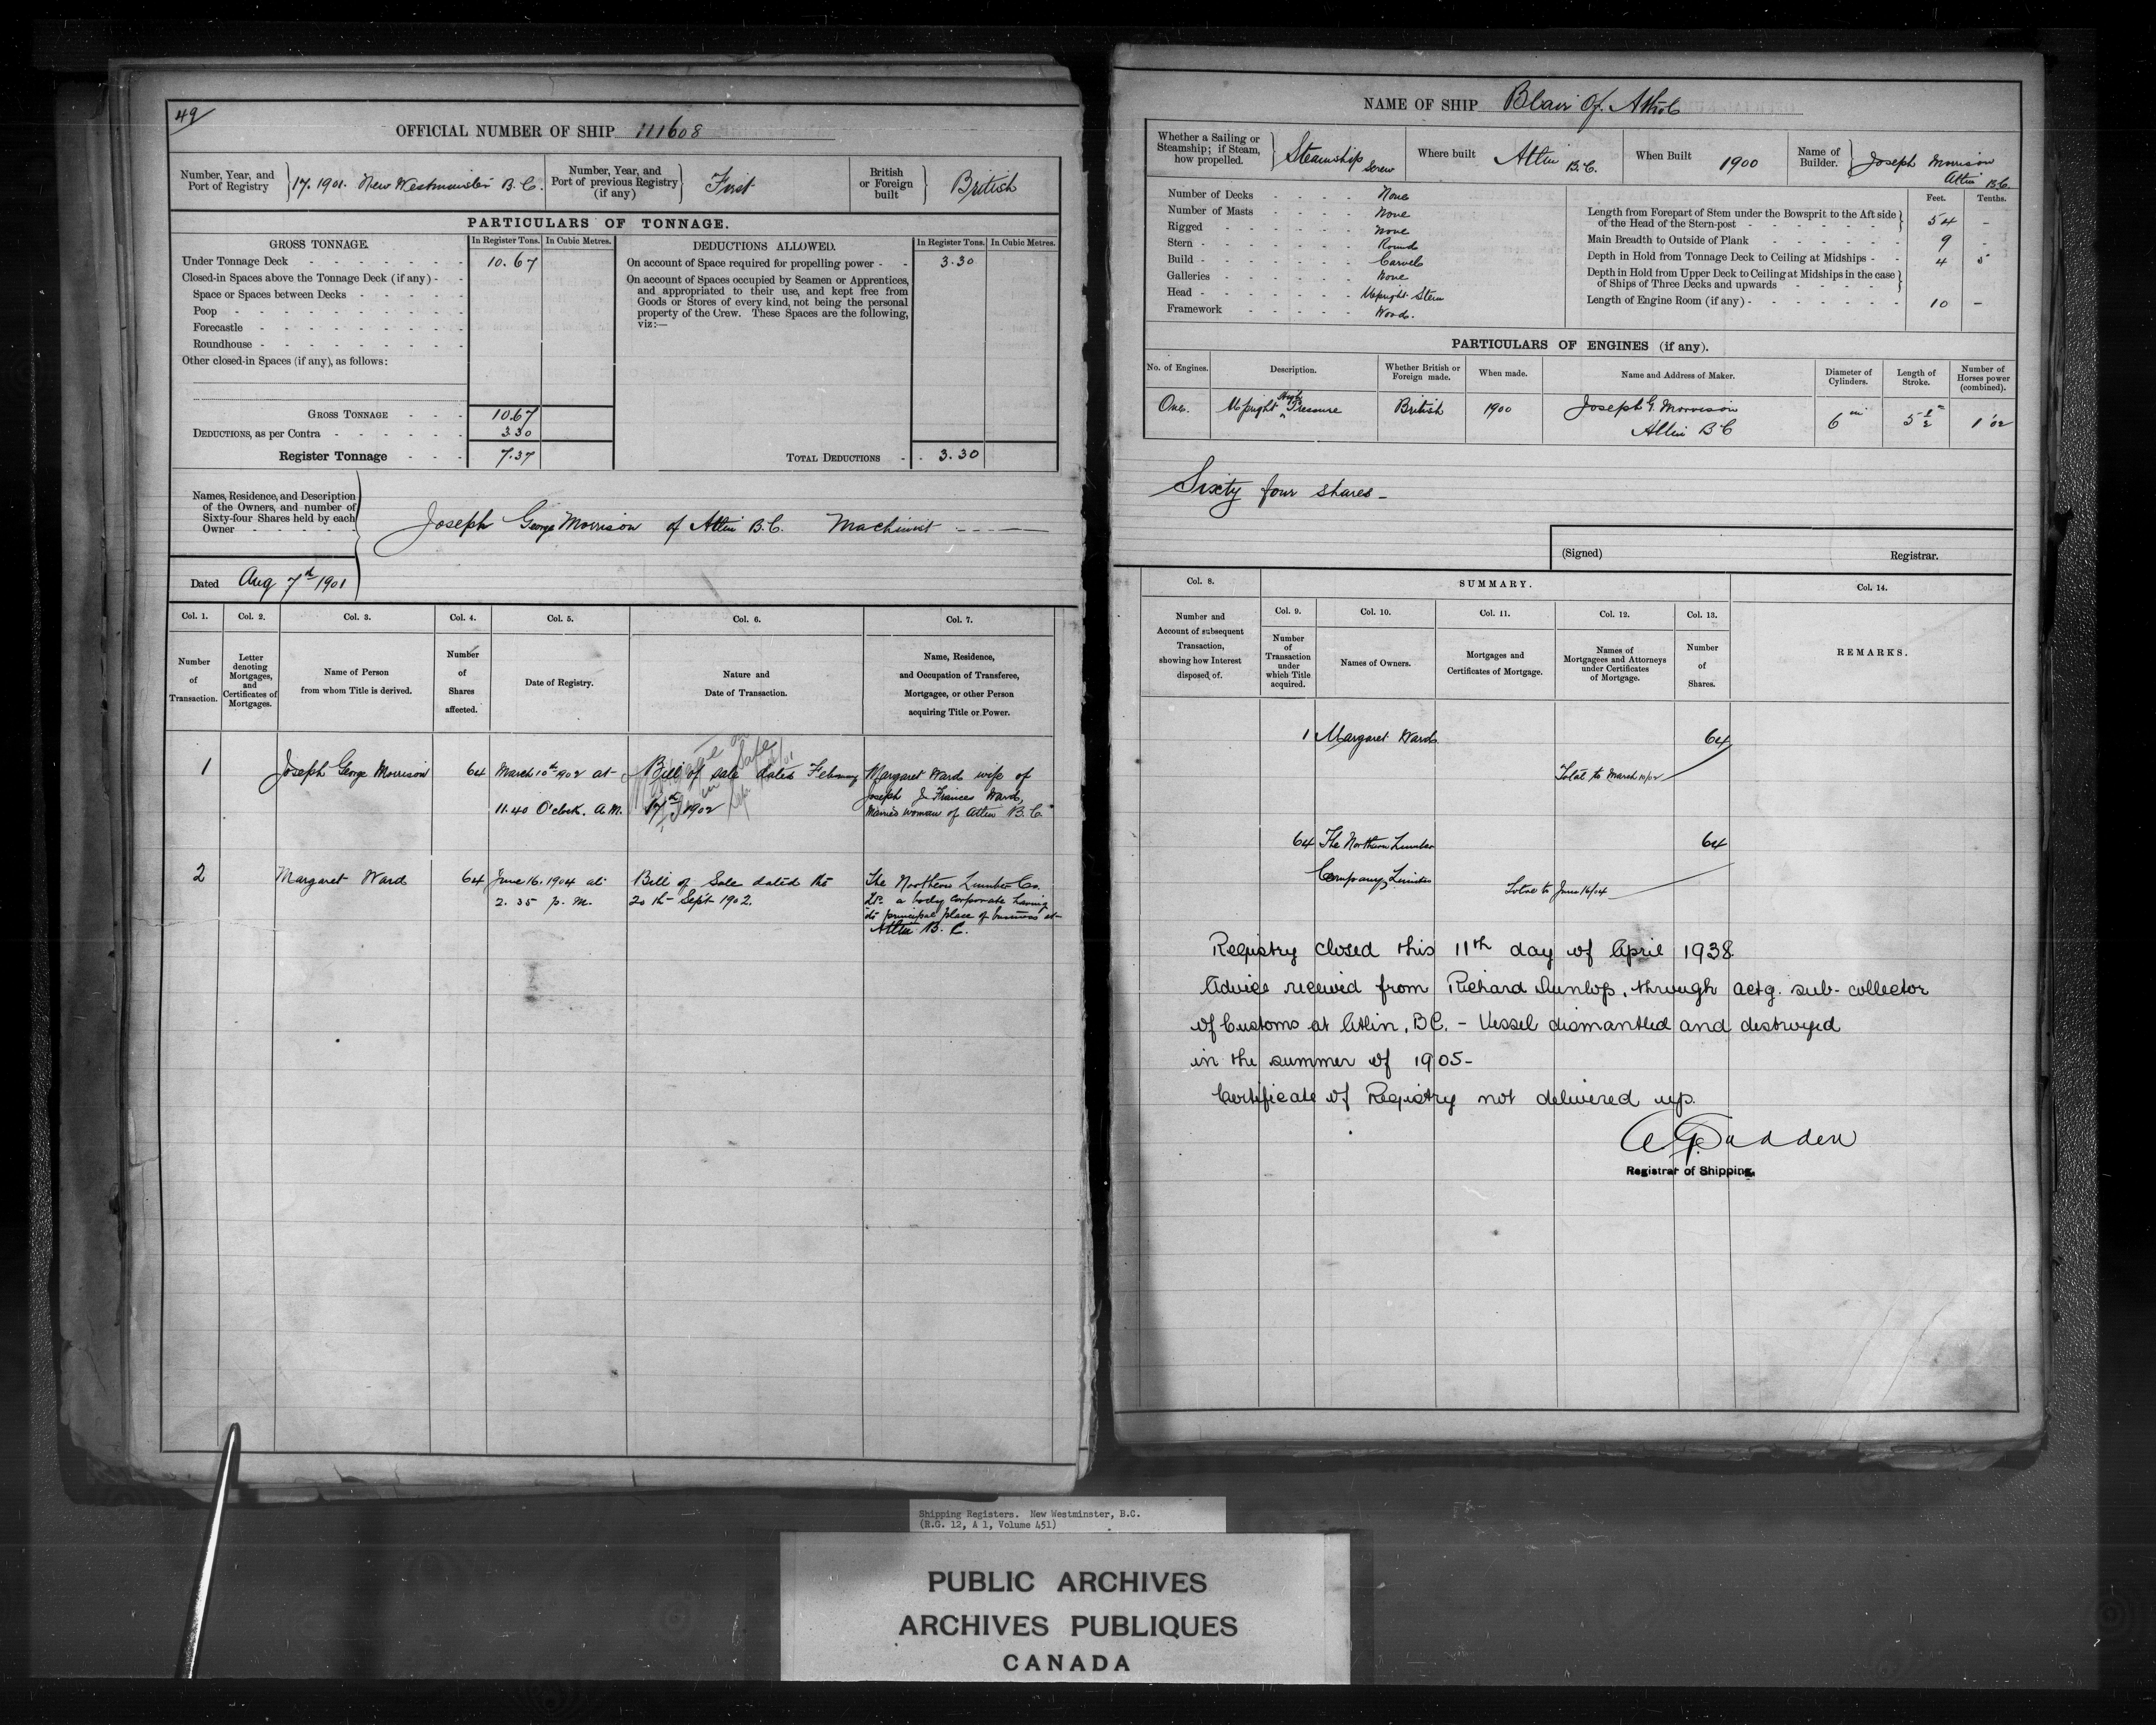 49
OFFICIAL NUMBER OF SHIP 111608
Number, Year, and Port of Registry 17. 1901. New Westminster B.C.
Number, Year, and Port of previous Registry (if any) First
British or Foreign built British
PARTICULARS OF TONNAGE.
GROSS TONNAGE. In Register Tons. In Cubic Metres.
DEDUCTIONS ALLOWED. In Register Tons. In Cubic Metres.
Under Tonnage Deck 10.67
Closed-in Spaces above the Tonnage Deck (if any)
Space or Spaces between Decks
Poop
Forecastle
Roundhouse
Other closed-in Spaces (if any), as follows:
GROSS TONNAGE 10.67
DEDUCTIONS, as per Contra 3.30
Register Tonnage 7.37
On account of Space required for propelling power 3.30
On account of Spaces occupied by Seamen or Apprentices,
and appropriated to their use, and kept free from
Goods or Stores of every kind, not being the personal
property of the Crew. These Spaces are the following,
viz:—
TOTAL DEDUCTIONS 3.30
Names, Residence, and Description
of the Owners, and number of
Sixty-four Shares held by each
Owner
Joseph George Morrison of Atlin B.C. Machinist
Dated Aug 7th 1901
Col. 1. Col. 2. Col. 3. Col. 4. Col. 5. Col. 6. Col. 7.
Number of Transaction.
Letter denoting Mortgages, and Certificates of Mortgages.
Name of Person from whom Title is derived.
Number of Shares affected.
Date of Registry.
Nature and Date of Transaction.
Name, Residence, and Occupation of Transferee, Mortgagee, or other Person acquiring Title or Power.
1 Joseph George Morrison 64 March 10th 1902 at 11.40 O'clock. A.M.
Bill of sale dated February 17th 1902
Margaret Ward wife of
Joseph Frances Ward,
Married woman of Atlin B.C.
2 Margaret Ward 64 June 16. 1904 at 2. 35 p. m.
Bill of Sale dated the 20th Sept 1902.
The Northern Lumber Co.
Ltd. a body corporate having
its principal place of business at
Atlin B. C.
NAME OF SHIP Blair Of Athol
Whether a Sailing or Steamship; if Steam, how propelled. Steamship Screw
Where built Atlin B.C.
When Built 1900
Name of Builder. Joseph Morrison Atlin B.C.
Number of Decks None
Number of Masts None
Rigged None
Stern Round
Build Carvel
Galleries None
Head Upright Stem
Framework Wood.
Feet. Tenths.
Length from Forepart of Stem under the Bowsprit to the Aft side of the Head of the Stern-post 54 -
Main Breadth to Outside of Plank 9 -
Depth in Hold from Tonnage Deck to Ceiling at Midships 4 5
Depth in Hold from Upper Deck to Ceiling at Midships in the case of Ships of Three Decks and upwards
Length of Engine Room (if any) 10 -
PARTICULARS OF ENGINES (if any).
No. of Engines. Description. Whether British or Foreign made. When made. Name and Address of Maker. Diameter of Cylinders. Length of Stroke. Number of Horses power (combined).
One. Upright High Pressure British 1900 Joseph G. Morrison Atlin B C 6 in 5 1/2 1.02
Sixty four shares -
(Signed) Registrar.
Col. 8. SUMMARY. Col. 14.
Col. 9. Col. 10. Col. 11. Col. 12. Col. 13.
Number and Account of subsequent Transaction, showing how Interest disposed of.
Number of Transaction under which Title acquired.
Names of Owners.
Mortgages and Certificates of Mortgage.
Names of Mortgagees and Attorneys under Certificates of Mortgage.
Number of Shares.
REMARKS.
1 Margaret Ward 64
Total to March 10/02
64 The Northern Lumber 64
Company Limited
Total to June 16/04
Registry closed this 11th day of April 1938.
Advice received from Richard Dunlop, through actg. sub-collector
of Customs at Atlin, B.C. - Vessel dismantled and destroyed
in the summer of 1905-
Certificate of Registry not delivered up.
Registrar of Shipping.
Shipping Registers. New Westminster, B.C.
(R.G. 12, A 1, Volume 451)
PUBLIC ARCHIVES
ARCHIVES PUBLIQUES
CANADA